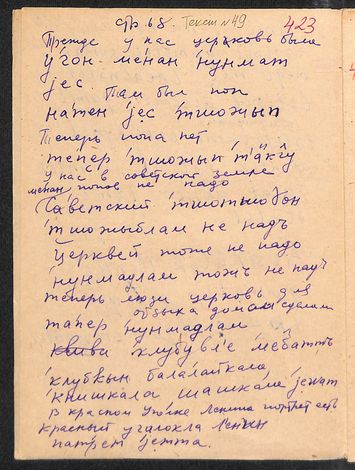 стр 68. Текст № 49 423
Прежде у нас церьковь была
у́гон ме́нан ну́нмат
jес. Там был поп
на́тен jес тшожып
Теперь попа нет
тепер тшожып та̄нгу
у нас в советской земле
менан попов не надо
Саветский
тшожыблам не надъ
Церквей тоже не надо
нунмадлам тожъ не надъ
теперь люди церковь для
домом сделали
тапер нунмадлам
клубувле
клубкын балалайкала
кнышкала шашкала jешат
в красном уголке Ленина портрет есть
красный уголокла Ленин
патрет jетта.